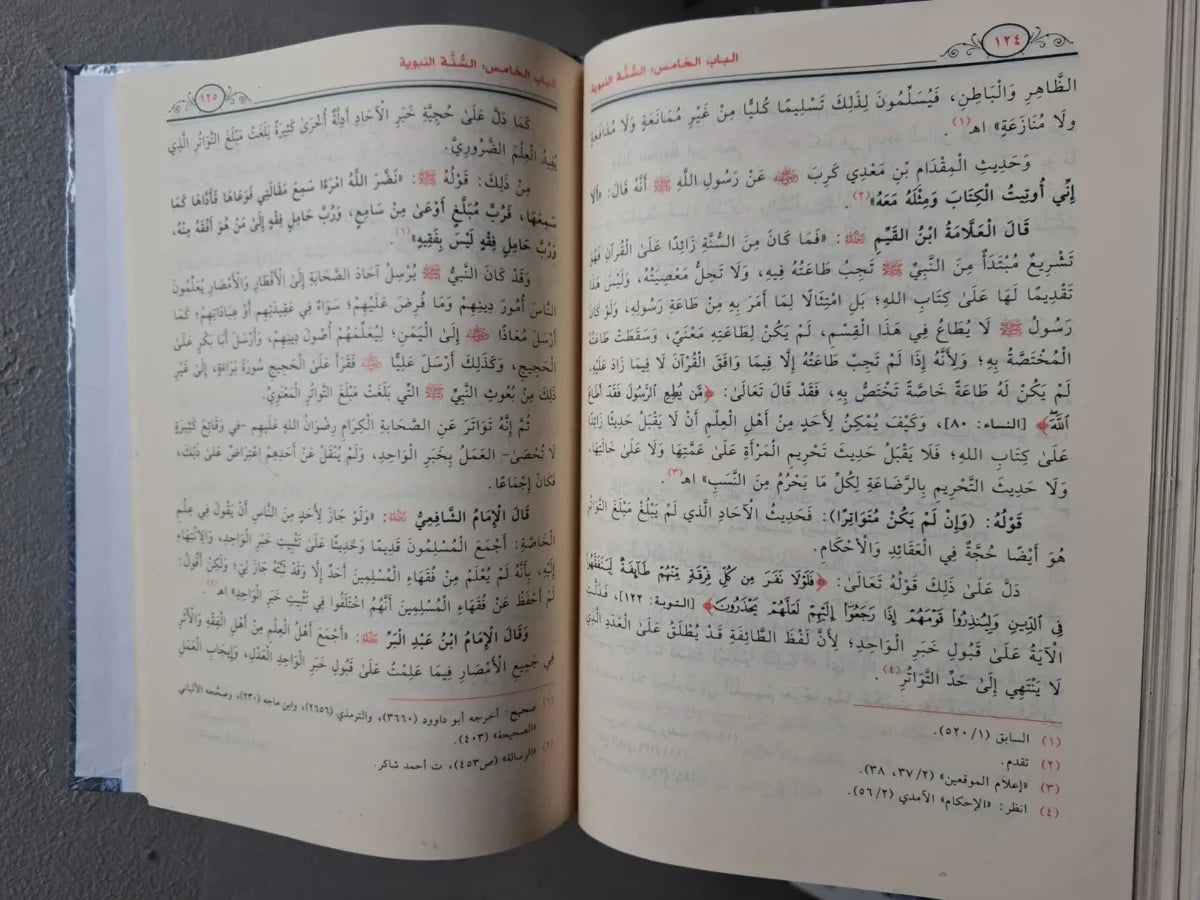 ١٢٤
الباب الخامس: السُّنَّة النبوية
الظَّاهِرِ وَالْبَاطِنِ، فَيُسَلِّمُونَ لِذَلِكَ تَسْلِيمًا كُلِّيًّا مِنْ غَيْرِ مُمَانَعَةٍ وَلَا مُدَافَعَةٍ
ولَا مُنَازَعَةٍ» اهـ(١).
وَحَدِيثِ الْمِقْدَامِ بْنِ مَعْدِي كَرِبَ ﵁ عَنْ رَسُولِ اللَّهِ ﷺ أَنَّهُ قَالَ: «أَلَا
إِنِّي أُوتِيتُ الْكِتَابَ وَمِثْلَهُ مَعَهُ»(٢).
قَالَ الْعَلَّامَةُ ابْنُ الْقَيِّمِ ﵀: «فَمَا كَانَ مِنَ السُّنَّةِ زَائِدًا عَلَىٰ الْقُرْآنِ فَهُوَ
تَشْرِيعٌ مُبْتَدَأٌ مِنَ النَّبِيِّ ﷺ تَجِبُ طَاعَتُهُ فِيهِ، وَلَا تَحِلُّ مَعْصِيَتُهُ، وَلَيْسَ هَذَا
تَقْدِيمًا لَهَا عَلَىٰ كِتَابِ اللهِ؛ بَلِ امْتِثَالًا لِمَا أَمَرَ بِهِ مِنْ طَاعَةِ رَسُولِهِ، وَلَوْ كَانَ
رَسُولُ ﷺ لَا يُطَاعُ فِي هَذَا الْقِسْمِ، لَمْ يَكُنْ لِطَاعَتِهِ مَعْنًى، وَسَقَطَتْ طَاعَتُهُ
الْمُخْتَصَّةُ بِهِ؛ وَلِأَنَّهُ إِذَا لَمْ تَجِبْ طَاعَتُهُ إِلَّا فِيمَا وَافَقَ الْقُرْآنَ لَا فِيمَا زَادَ عَلَيْهِ،
لَمْ يَكُنْ لَهُ طَاعَةٌ خَاصَّةٌ تَخْتَصُّ بِهِ، فَقَدْ قَالَ تَعَالَىٰ: ﴿مَّن يُطِعِ ٱلرَّسُولَ فَقَدْ أَطَاعَ
ٱللَّهَ﴾ [النساء: ٨٠]، وَكَيْفَ يُمْكِنُ لِأَحَدٍ مِنْ أَهْلِ الْعِلْمِ أَنْ لَا يَقْبَلَ حَدِيثًا زَائِدًا
عَلَىٰ كِتَابِ اللهِ؛ فَلَا يَقْبَلُ حَدِيثَ تَحْرِيمِ الْمَرْأَةِ عَلَىٰ عَمَّتِهَا وَلَا عَلَىٰ خَالَتِهَا،
وَلَا حَدِيثَ التَّحْرِيمِ بِالرَّضَاعَةِ لِكُلِّ مَا يَحْرُمُ مِنَ النَّسَبِ» اهـ(٣).
قَوْلُهُ: (وَإِنْ لَمْ يَكُنْ مُتَوَاتِرًا): فَحَدِيثُ الْآحَادِ الَّذِي لَمْ يَبْلُغْ مَبْلَغَ التَّوَاتُرِ
هُوَ أَيْضًا حُجَّةٌ فِي الْعَقَائِدِ وَالْأَحْكَامِ.
دَلَّ عَلَىٰ ذَلِكَ قَوْلُهُ تَعَالَىٰ: ﴿فَلَوْلَا نَفَرَ مِن كُلِّ فِرْقَةٍ مِّنْهُمْ طَآئِفَةٌ لِّيَتَفَقَّهُوا۟
فِى ٱلدِّينِ وَلِيُنذِرُوا۟ قَوْمَهُمْ إِذَا رَجَعُوٓا۟ إِلَيْهِمْ لَعَلَّهُمْ يَحْذَرُونَ﴾ [التوبة: ١٢٢]، فَدَلَّتِ
الْآيَةُ عَلَىٰ قَبُولِ خَبَرِ الْوَاحِدِ؛ لِأَنَّ لَفْظَ الطَّائِفَةِ قَدْ يُطْلَقُ عَلَىٰ الْعَدَدِ الَّذِي
لَا يَنْتَهِي إِلَىٰ حَدِّ التَّوَاتُرِ(٤).
(١) السابق (١/ ٥٢٠).
(٢) تقدم.
(٣) «إعلام الموقعين» (٢/ ٣٧، ٣٨).
(٤) انظر: «الإحكام» الآمدي (٢/ ٥٦).
الباب الخامس: السُّنَّة النبوية
١٢٥
كَمَا دَلَّ عَلَىٰ حُجِّيَّةِ خَبَرِ الْآحَادِ أَدِلَّةٌ أُخْرَىٰ كَثِيرَةٌ بَلَغَتْ مَبْلَغَ التَّوَاتُرِ الَّذِي
يُفِيدُ الْعِلْمَ الضَّرُورِيَّ.
مِنْ ذَلِكَ: قَوْلُهُ ﷺ: «نَضَّرَ اللَّهُ امْرَءًا سَمِعَ مَقَالَتِي فَوَعَاهَا فَأَدَّاهَا كَمَا
سَمِعَهَا، فَرُبَّ مُبَلَّغٍ أَوْعَىٰ مِنْ سَامِعٍ، وَرُبَّ حَامِلِ فِقْهٍ إِلَىٰ مَنْ هُوَ أَفْقَهُ مِنْهُ،
وَرُبَّ حَامِلِ فِقْهٍ لَيْسَ بِفَقِيهٍ»(١).
وَقَدْ كَانَ النَّبِيُّ ﷺ يُرْسِلُ آحَادَ الصَّحَابَةِ إِلَىٰ الْأَقْطَارِ وَالْأَمْصَارِ يُعَلِّمُونَ
النَّاسَ أُمُورَ دِينِهِمْ وَمَا فُرِضَ عَلَيْهِمْ؛ سَوَاءٌ فِي عَقِيدَتِهِمْ أَوْ عِبَادَاتِهِمْ؛ كَمَا
أَرْسَلَ مُعَاذًا ﵁ إِلَىٰ الْيَمَنِ؛ لِيُعَلِّمَهُمْ أُصُولَ دِينِهِمْ، وَأَرْسَلَ أَبَا بَكْرٍ عَلَىٰ
الْحَجِيجِ، وَكَذَلِكَ أَرْسَلَ عَلِيًّا ﵁ فَقَرَأَ عَلَىٰ الْحَجِيجِ سُورَةَ بَرَاءَةَ، إِلَىٰ غَيْرِ
ذَلِكَ مِنْ بُعُوثِ النَّبِيِّ ﷺ الَّتِي بَلَغَتْ مَبْلَغَ التَّوَاتُرِ الْمَعْنَوِيِّ.
ثُمَّ إِنَّهُ تَوَاتَرَ عَنِ الصَّحَابَةِ الْكِرَامِ رِضْوَانُ اللهِ عَلَيْهِم -فِي وَقَائِعَ كَثِيرَةٍ
لَا تُحْصَىٰ- الْعَمَلُ بِخَبَرِ الْوَاحِدِ، وَلَمْ يُنْقَلْ عَنْ أَحَدِهِمْ اعْتِرَاضٌ عَلَىٰ ذَلِكَ،
فَكَانَ إِجْمَاعًا.
قَالَ الْإِمَامُ الشَّافِعِيُّ ﵀: «وَلَوْ جَازَ لِأَحَدٍ مِنَ النَّاسِ أَنْ يَقُولَ فِي عِلْمِ
الْخَاصَّةِ: أَجْمَعَ الْمُسْلِمُونَ قَدِيمًا وَحَدِيثًا عَلَىٰ تَثْبِيتِ خَبَرِ الْوَاحِدِ، وَالِانْتِهَاءِ
إِلَيْهِ، بِأَنَّهُ لَمْ يُعْلَمْ مِنْ فُقَهَاءِ الْمُسْلِمِينَ أَحَدٌ إِلَّا وَقَدْ ثَبَّتَهُ جَازَ لِي؛ وَلَكِنْ أَقُولُ:
لَمْ أَحْفَظْ عَنْ فُقَهَاءِ الْمُسْلِمِينَ أَنَّهُمُ اخْتَلَفُوا فِي تَثْبِيتِ خَبَرِ الْوَاحِدِ» اهـ(٢).
وَقَالَ الْإِمَامُ ابْنُ عَبْدِ الْبَرِّ ﵀: «أَجْمَعَ أَهْلُ الْعِلْمِ مِنْ أَهْلِ الْفِقْهِ وَالْأَثَرِ
فِي جَمِيعِ الْأَمْصَارِ فِيمَا عَلِمْتُ عَلَىٰ قَبُولِ خَبَرِ الْوَاحِدِ الْعَدْلِ، وَإِيجَابِ الْعَمَلِ
(١) صحيح: أخرجه أبو داوود (٣٦٦٠)، والترمذي (٢٦٥٦)، وابن ماجه (٢٣٠)، وصححه الألباني
«الصحيحة» (٤٠٣).
(٢) «الرسالة» (ص٤٥٣)، ت أحمد شاكر.